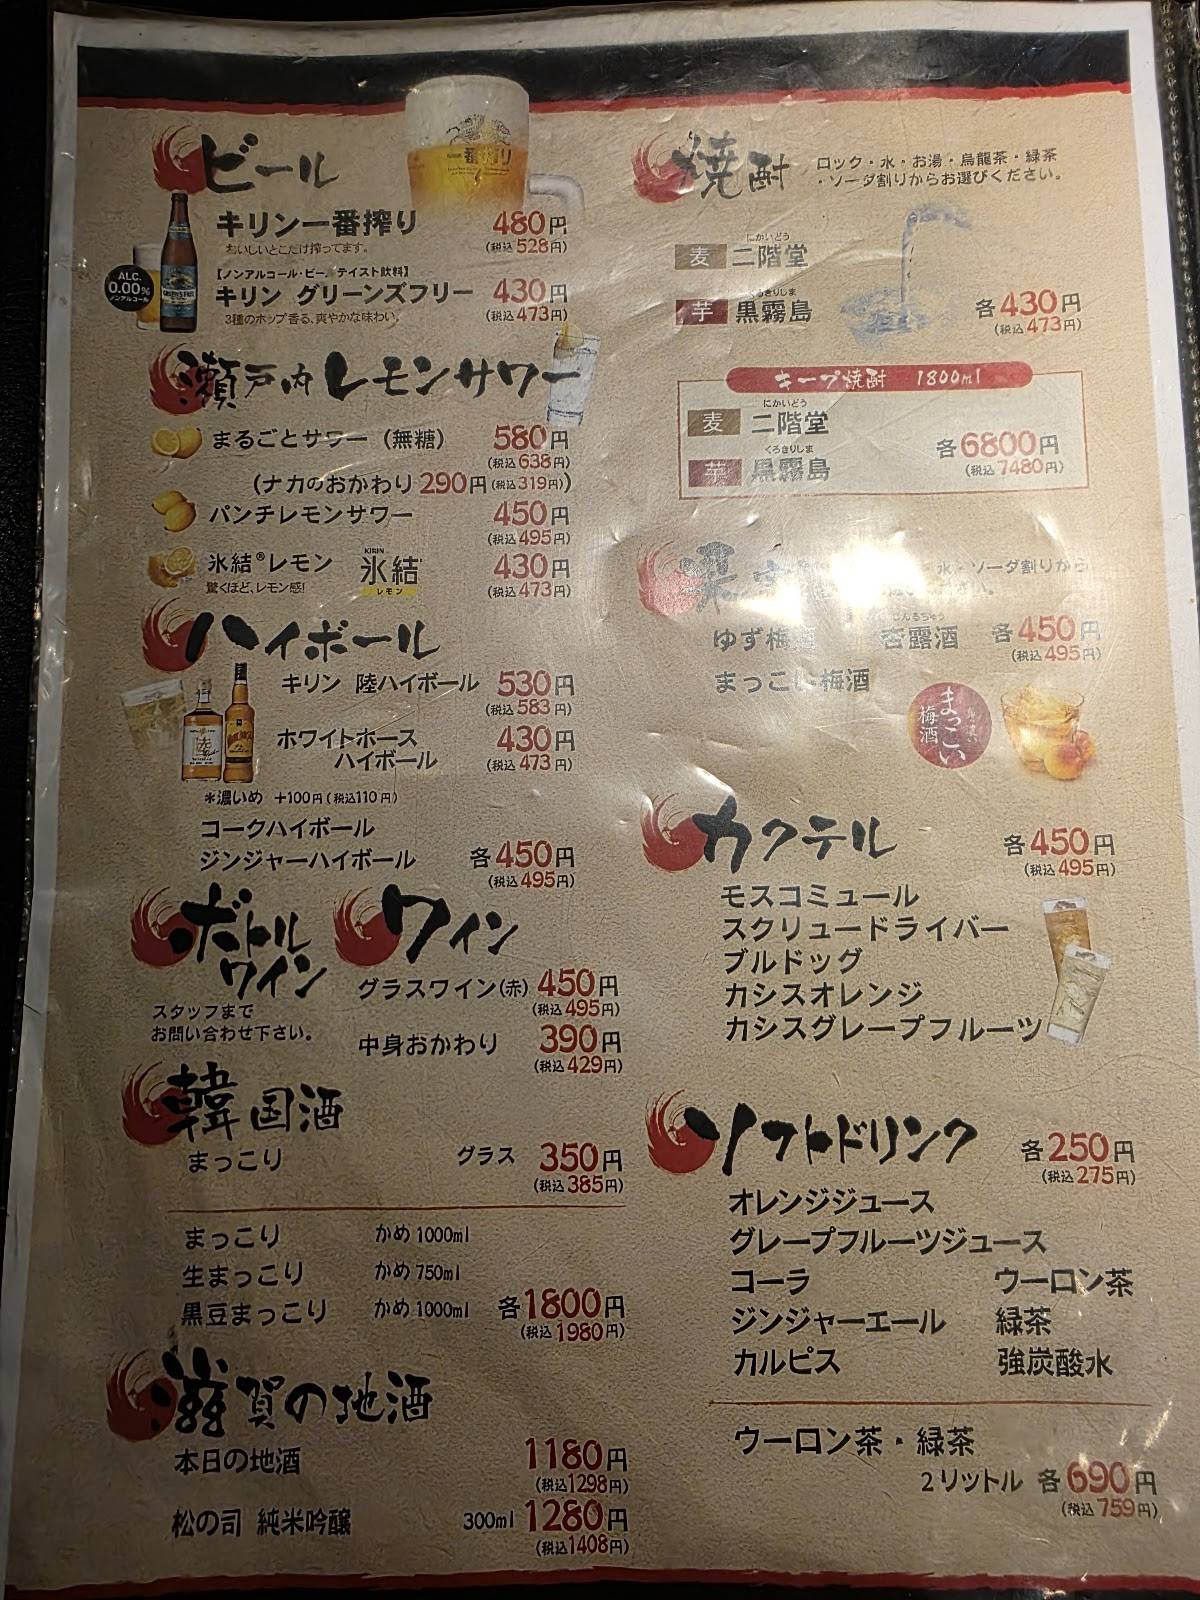 ビール
キリン一番搾り 480円
おいしいとこだけ搾ってます。 (税込528円)
ALC. 0.00% ノンアルコール
キリン グリーンズフリー 430円
3種のホップ香る、爽やかな味わい。 (税込473円)
瀬戸内レモンサワー
まるごとサワー（無糖） 580円
(税込638円)
(ナカのおかわり290円(税込319円))
パンチレモンサワー 450円
(税込495円)
氷結®レモン KIRIN 氷結 レモン 430円
驚くほど、レモン感! (税込473円)
ハイボール
キリン 陸ハイボール 530円
(税込583円)
ホワイトホース
ハイボール 430円
(税込473円)
*濃いめ +100円(税込110円)
コークハイボール
ジンジャーハイボール 各450円
(税込495円)
ボトル
ワイン
スタッフまで
お問い合わせ下さい。
ワイン
グラスワイン(赤) 450円
(税込495円)
中身おかわり 390円
(税込429円)
韓国酒
まっこり グラス 350円
(税込385円)
まっこり かめ1000ml
生まっこり かめ750ml
黒豆まっこり かめ1000ml 各1800円
(税込1980円)
滋賀の地酒
本日の地酒 1180円
(税込1298円)
松の司 純米吟醸 300ml 1280円
(税込1408円)
焼酎 ロック・水・お湯・烏龍茶・緑茶
・ソーダ割りからお選びください。
にかいどう
麦 二階堂
くろきりしま
芋 黒霧島 各430円
(税込473円)
キープ焼酎 1800ml
にかいどう
麦 二階堂
くろきりしま
芋 黒霧島 各6800円
(税込7480円)
水・ソーダ割りから
ゆず梅酒 杏露酒 各450円
(税込495円)
まっこい梅酒
まっこい
梅酒
カクテル 各450円
(税込495円)
モスコミュール
スクリュードライバー
ブルドッグ
カシスオレンジ
カシスグレープフルーツ
ソフトドリンク 各250円
(税込275円)
オレンジジュース
グレープフルーツジュース
コーラ ウーロン茶
ジンジャーエール 緑茶
カルピス 強炭酸水
ウーロン茶・緑茶
2リットル 各690円
(税込759円)